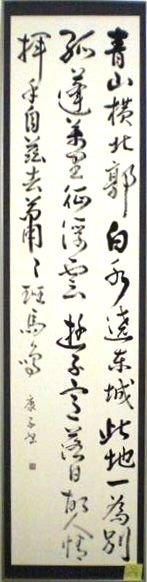 青山橫北郭白水遶東城此地一為別
孤蓬萬里征浮雲遊子意落日故人情
揮手自茲去蕭〻班馬鳴